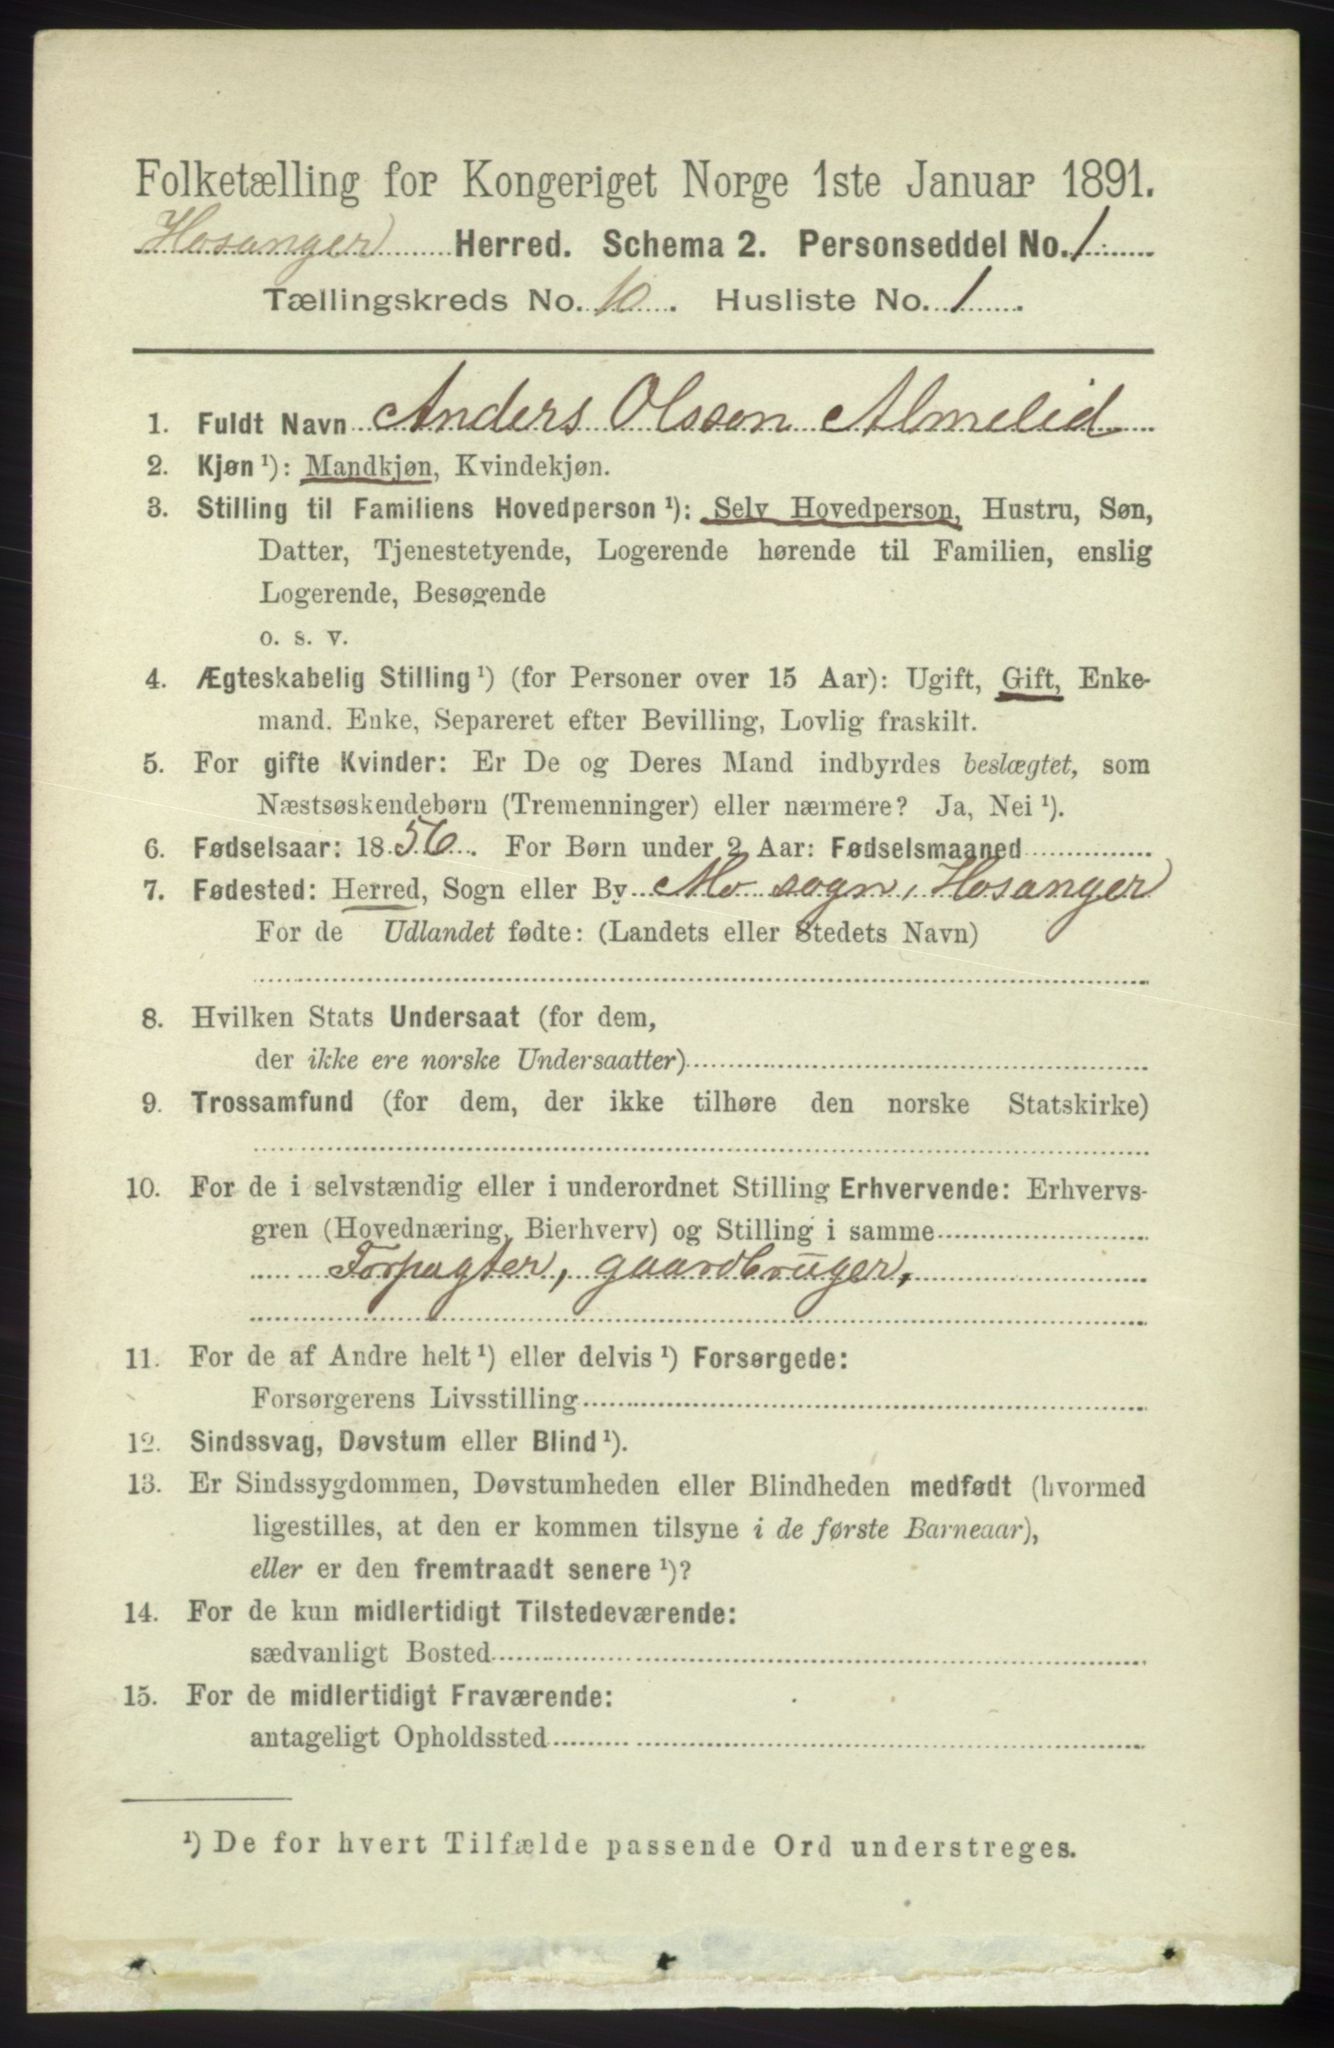 Folketælling for Kongeriget Norge 1ste Januar 1891.
Hosanger Herred. Schema 2. Personseddel No. 1
Tællingskreds No. 10. Husliste No. 1.
1. Fuldt Navn Anders Olsson Almelid
2. Kjøn ¹): Mandkjøn, Kvindekjøn.
3. Stilling til Familiens Hovedperson ¹): Selv Hovedperson, Hustru, Søn,
Datter, Tjenestetyende, Logerende hørende til Familien, enslig
Logerende, Besøgende
o. s. v.
4. Ægteskabelig Stilling ¹) (for Personer over 15 Aar): Ugift, Gift, Enke-
mand, Enke, Separeret efter Bevilling, Lovlig fraskilt.
5. For gifte Kvinder: Er De og Deres Mand indbyrdes beslægtet, som
Næstsøskendebørn (Tremenninger) eller nærmere? Ja, Nei ¹).
6. Fødselsaar: 1856. For Børn under 2 Aar: Fødselsmaaned
7. Fødested: Herred, Sogn eller By Mo sogn, Hosanger
For de Udlandet fødte: (Landets eller Stedets Navn)
8. Hvilken Stats Undersaat (for dem,
der ikke ere norske Undersaatter)
9. Trossamfund (for dem, der ikke tilhøre den norske Statskirke)
10. For de i selvstændig eller i underordnet Stilling Erhvervende: Erhvervs-
gren (Hovednæring, Bierhverv) og Stilling i samme
Forpagter, gaardbruger,
11. For de af Andre helt ¹) eller delvis ¹) Forsørgede:
Forsørgerens Livsstilling
12. Sindssvag, Døvstum eller Blind ¹).
13. Er Sindssygdommen, Døvstumheden eller Blindheden medfødt (hvormed
ligestilles, at den er kommen tilsyne i de første Barneaar),
eller er den fremtraadt senere ¹)?
14. For de kun midlertidigt Tilstedeværende:
sædvanligt Bosted
15. For de midlertidigt Fraværende:
antageligt Opholdssted
¹) De for hvert Tilfælde passende Ord understreges.